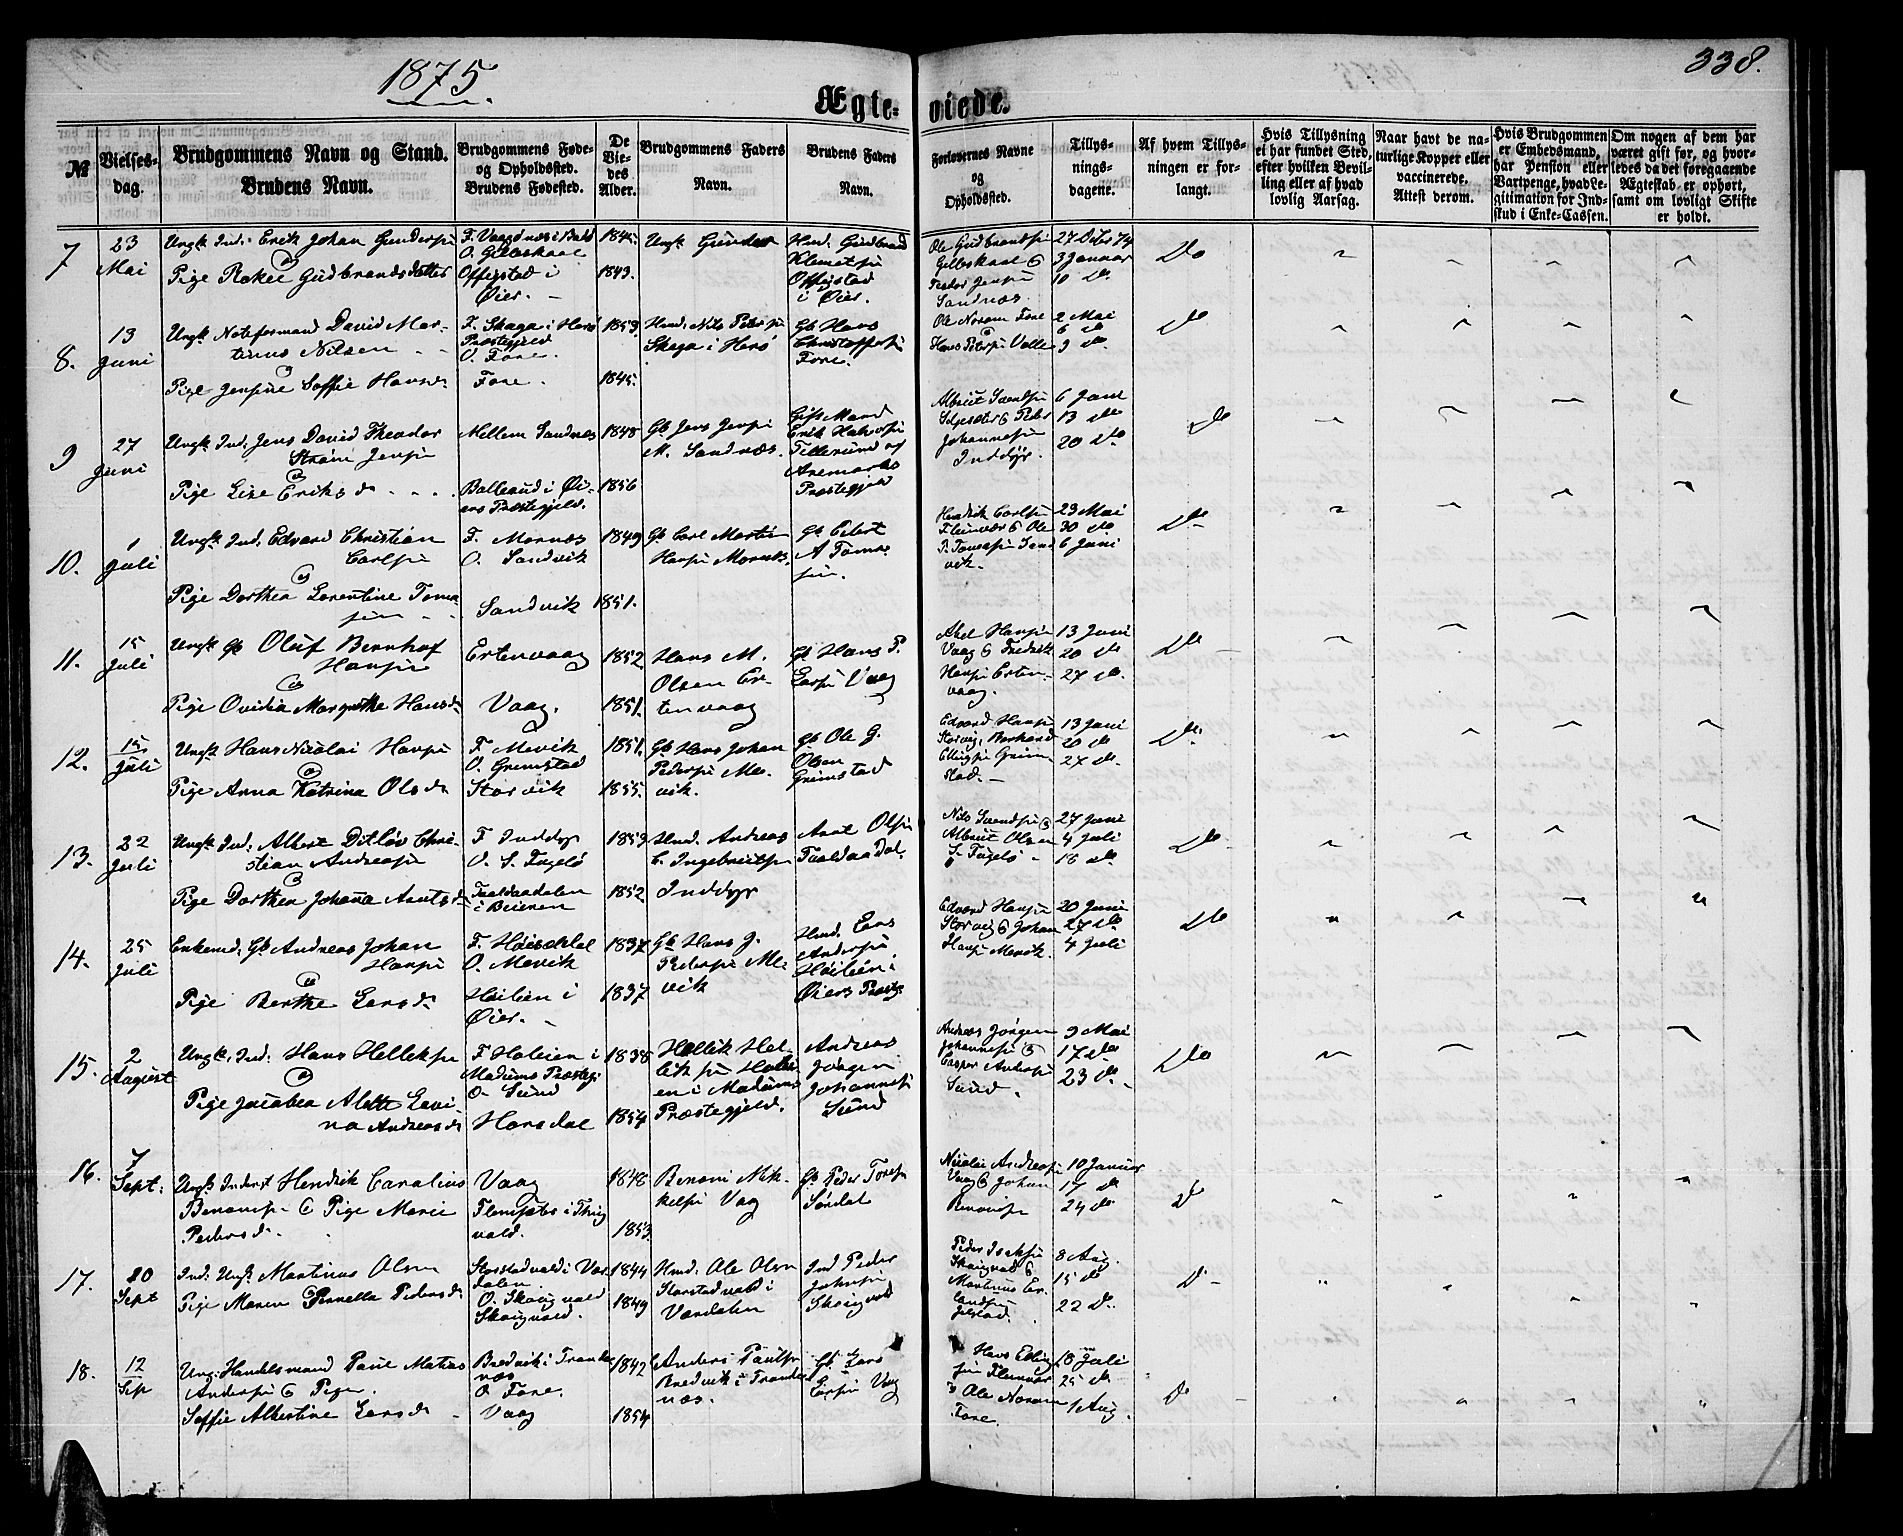 1875
338.
Ægte-
viede.
№
Vielses-
dag.
Brudgommens Navn og Stand.
Brudens Navn.
Brudgommens Føde-
og Opholdssted.
Brudens Fødested.
De
Vie-
des
Alder.
Brudgommens Faders
Navn.
Brudens Faders
Navn.
Forlovernes Navne
og
Opholdssted.
Tillys-
nings-
dagene.
Af hvem Tillys-
ningen er for-
langt.
Hvis Tillysning
ei har fundet Sted,
efter hvilken Bevil-
ling eller af hvad
lovlig Aarsag.
Naar havt de na-
turlige Kopper eller
vaccinerede.
Attest derom.
Hvis Brudgommen
er Embedsmand,
har Pension eller
Vartpenge, hvad Le-
gitimation for Ind-
skud i Enke-Cassen.
Om nogen af dem har
været gift før, og hvor-
ledes da det foregaaende
Ægteskab er ophørt,
samt om lovligt Skifte
er holdt.
7
23
Mai
Ungk. Ind: Erik Johan Gundersen
Pige Rakel Gudbrandsdatter
O. Gildeskaal
Offigstad i
Øier.
1845
1843.
Ungk Gunder
Hmd. Gudbrand
Offigstad
i Øier.
Ole Gudbrandsen
Gildeskaal &
Peder Jensen
Sandnæs.
27 Debr 74
3 Januar
10 Do
Do
8.
13
Juni
Ungk. Noteformand David Mar-
tinus Nilsen
Pige Jensine Soffie Hansd.
F. Skaga i Herø
Præstegjeld
O. Fore.
Fore.
1853
1845.
Hmd. Nils Peder
Skaga i Herø
Gb Hans
Christoffersen
Fore.
Ole Norum Fore
&
Hans Peter Valle
2 Mai
6 do
9 do
Do
9
27
Juni
Ungk Ind. Jens David Theodor
Strøm Jensen
&
Pige Lise Eriksd.
Mellem Sandnæs
Ballerud i Øi-
ers Præstegjeld.
1848
1856
Gb Jens Jensen
M. Sandnæs.
Gift Mand
Erik Halvorsen
Tillerund af
Aremarks
Præstegjeld
Albriet Svendsen
Selsæter & Peder
Johannesen
Inddyr.
6 Juni
13 do
20 do
Do
10.
1
Juli
Ungk. Ind. Edvard Christian
Carlsen
&
Pige Dorthea Lorentine Tomas-
sen
F. Mornæs
O. Sandvik
Sandvik
1849
1851.
Gb Carl Martin
Hansen Mornæs.
Gb Eilert
A Tomas-
sen.
Hendrik Carlsen
Fleinvær & Ole
P. Tomassen Sand
vik.
23 Mai
30 do
6 Juni
Do
11.
15
Juli
Ungk Gb Oluf Bernhof
Hansen
&
Pige Ovidia Margrethe Hansd.
Ertenvaag
Vaag.
1852
1851.
Hans M.
Olsen Er-
tenvaag
Gb Hans P.
Larsen Vaag
Axel Hansen
Vaag & Fredrik
Hansen Erten-
vaag.
13 Juni
20 do
27 do.
Do
12.
15
Juli
Ungk Hans Nicolai Hansen
&
Pige Anna Katrina Olsd.
F. Mevik
O. Grimstad
Storvik
1851.
1855.
Gb Hans Johan
Pedersen Me-
vik.
Gb Ole G.
Olsen
Grimstad
Edvard Hansen
Storvig, Bernhard
Ellingsen Grim
stad.
13 Juni
20 do
27 do.
Do.
13.
22
Juli
Ungk Ind. Albert Ditløv Chri-
stian Andreasen
&
Pige Dorthea Johana Arntsd.
F Inddyr
O. S. Fugelø
Tualdaadalen
i Beieren
1853
1852
Hmd. Andreas
C. Ingebritsen
Inddyr
Arnt Olsen
Tvoldaa Dal.
Nils Svendsen &
Albriet Olsen
S. Fugelø
27 Juni
4 Juli
18 do.
Do
14.
25
Juli
Enkemd. Gb Andreas Johan
Hansen
&
Pige Berthe Larsd.
F. Høisdal
O. Mevik
Høilien i
Øier.
1837
1837
Gb Hans J.
Pedersen Me-
vik
Hmd. Lars
Andersen
Høilien i
Øiers Præstg.
Edvard Hansen
Storvig & Johan
Hansen Mevik.
20 Juni
27 do
4 Juli
Do
15.
2
August
Ungk. Ind: Hans Helleksen
&
Pige Jacobea Alette Lovi-
na Andreasd.
F Holeien i
Modums Præsteg:
O. Sund
Horsdal
1838
1854
Hellik Hel-
liksen Holei-
en i Modums
Præstegjeld.
Andreas
Jørgen
Johannesen
Sund
Andreas Jørgen
Johannesen &
Casper Andersen
Sund.
9 Mai
17 do
23 do.
Do
16.
7
Sept:
Ungk Inderst Hendrik Carolius
Benonisen & Pige Marie
Pedersd.
Vaag
1848
1853.
Benoni Mik-
kelsen Vaag
Gb Peder Tore
Sørdal
Nicolai Andreasen
Vaag & Johan
Benonisen
10 Januar
17 do
24 do
Do
17.
20
Sept
Ind: Ungk. Martinus Olsen
Pige Maren Pernella Pedersd.
Storstadvald i Vær
dalen
O. Skaugvold
Skaugvold.
1844
1849
Hmd: Ole Olsen
Storstadvald i
Værdalen
Ind Peder
Johnsen
Skaugvold
Peder Isaksen
Skaugvold &
Martinus Er-
landsen
8 Aug.
15 do
22 Do.
Do
18.
12
Sep
Ung: Handelsmand Paul Matias
Andersen & Pige
Soffie Albertine Larsd.
Bredvik i Tranden-
næs
O. Fore.
Vaag
1842
1854
Anders Paulsen
Bredvik i Tranden-
næs.
Gb. Lars
Larsen Vaag
Hans Elling
sen Fleinvær
& Ole Norum
Fore.
18 Juli
25 do.
1 Aug.
Do